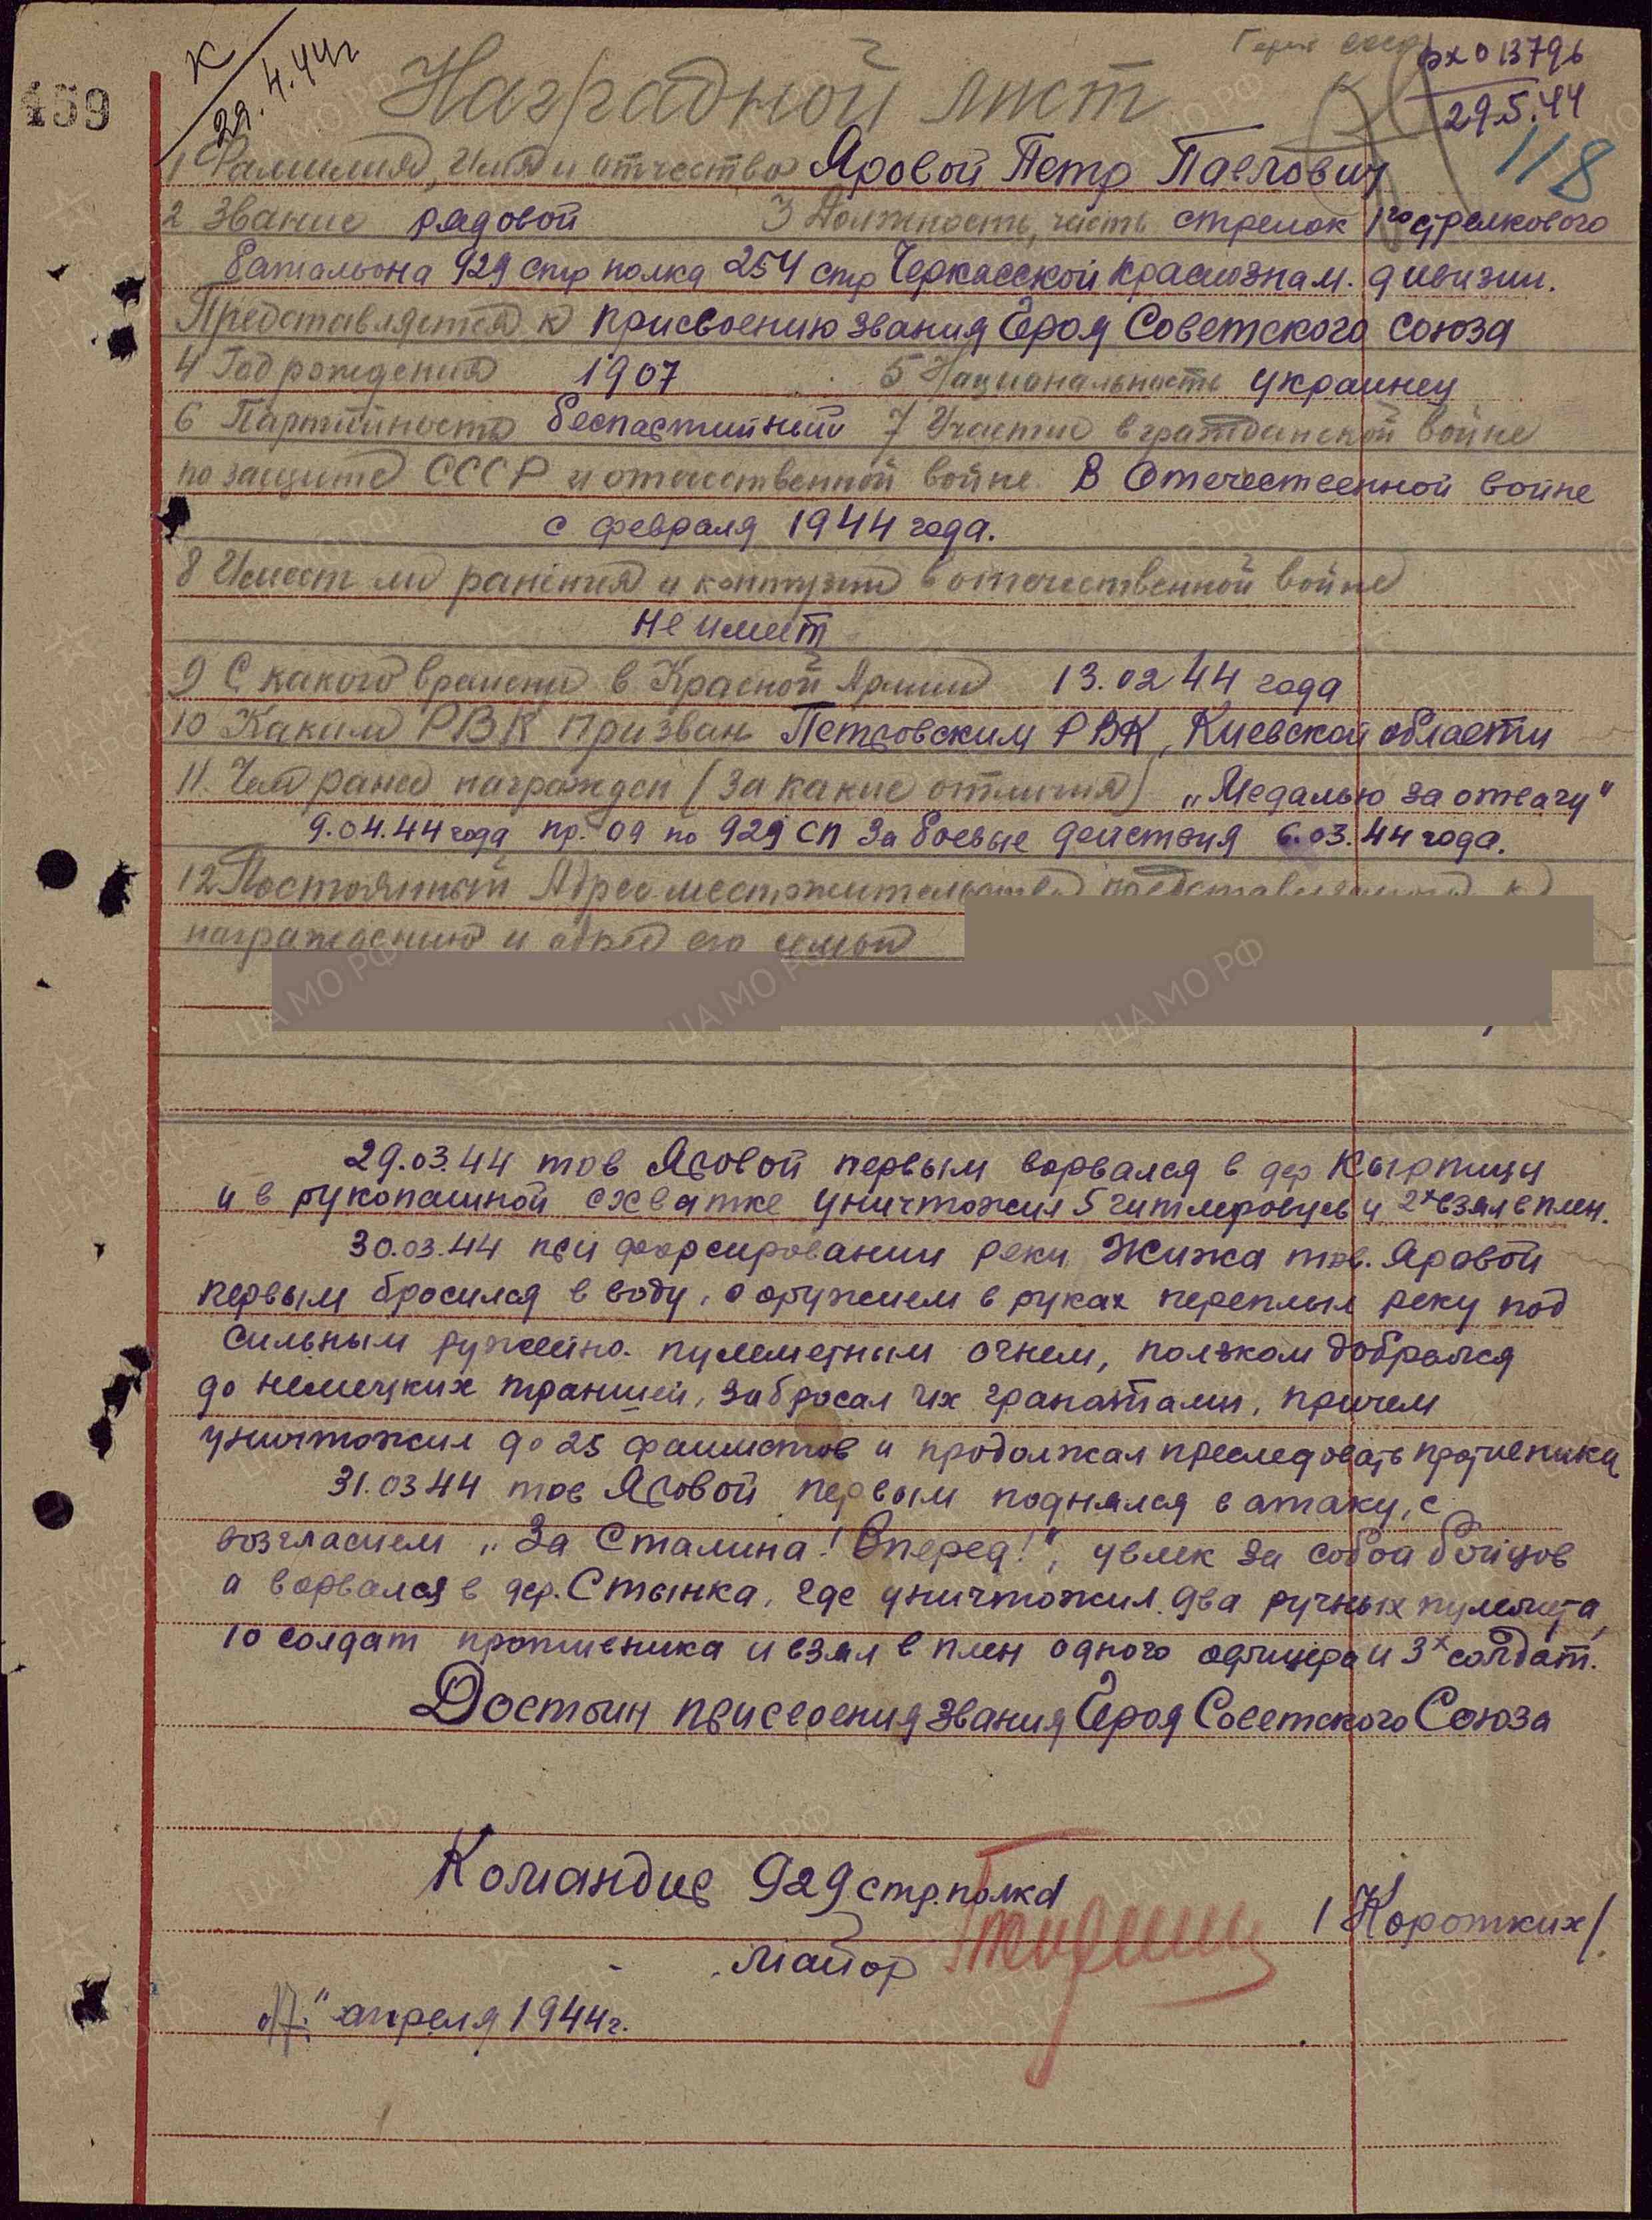 459
К
29.4.44г
Героя СССР
вх 013796
29.5.44
118
Наградной лист
1 Фамилия, имя и отчество Яровой Петр Павлович
2 Звание рядовой 3 Должность, часть стрелок 1го стрелкового
батальона 929 стр полка 254 стр Черкасской Краснознам. дивизии.
Представляется к присвоению звания Героя Советского Союза
4 Год рождения 1907 5 Национальность украинец
6 Партийность беспартийный 7 Участие в гражданской войне
по защите СССР и отечественной войне В Отечественной войне
с февраля 1944 года.
8 Имеет ли ранения и контузии в отечественной войне
не имеет
9 С какого времени в Красной Армии 13.02 44 года
10 Каким РВК призван Петровским РВК, Киевской области
11. Чем ранее награжден (за какие отличия) „Медалью за отвагу"
9.04.44 года пр. 09 по 929 СП за боевые действия 6.03.44 года.
12 Постоянный Адрес местожительства представляемого к
награждению и адрес его семьи
29.03.44 тов Яровой первым ворвался в дер Кырпицы
и в рукопашной схватке уничтожил 5 гитлеровцев и 2х взял в плен.
30.03.44 при форсировании реки Жижа тов. Яровой
первым бросился в воду, с оружием в руках переплыл реку под
сильным ружейно. пулеметным огнем, ползком добрался
до немецких траншей, забросал их гранатами, причем
уничтожил до 25 фашистов и продолжал преследовать противника
31.03 44 тов Яровой первым поднялся в атаку, с
возгласием „За Сталина! Вперед!", увлек за собой бойцов
и ворвался в дер. Стынка, где уничтожил два ручных пулемета,
10 солдат противника и взял в плен одного офицера и 3х солдат.
Достоин присвоения звания Героя Советского Союза
Командир 929 стр. полка
майор /Коротких/
„17." апреля 1944г.